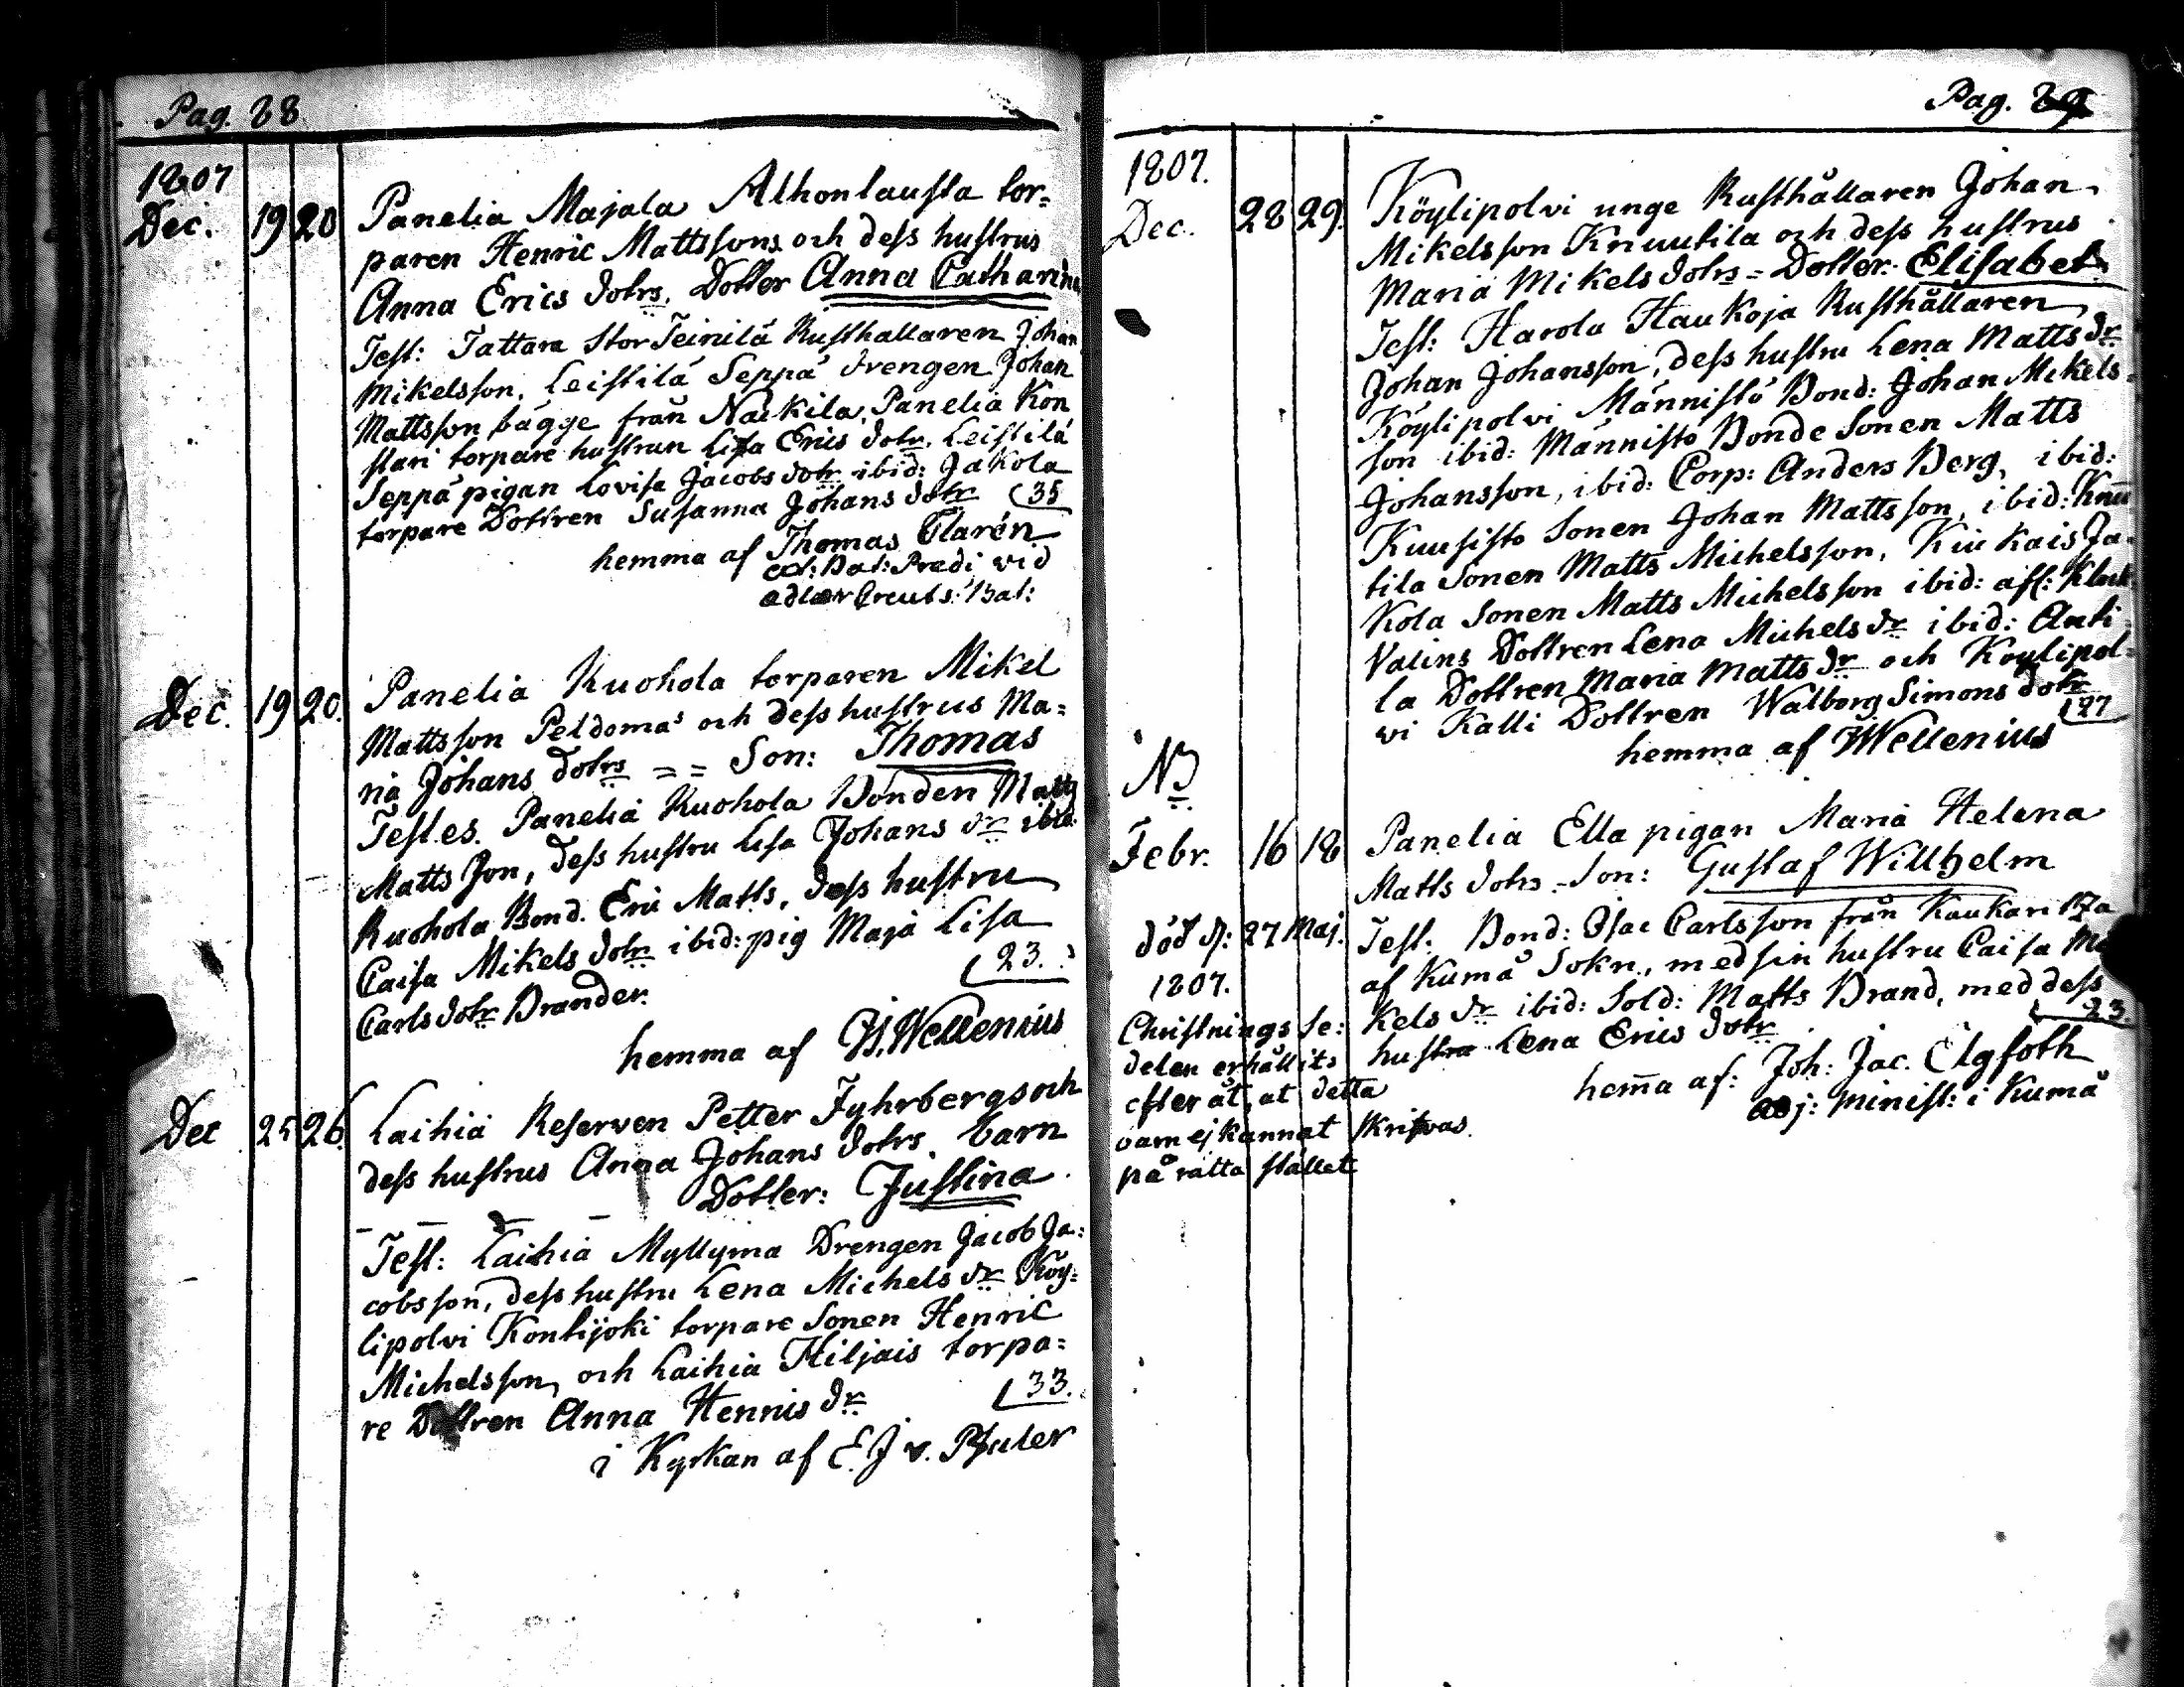 Pag. 28
1807
Dec. 19 20 Panelia Majala Alhonlausta tor=
paren Henric Mattssons och dess hustrus
Anna Erics dotrs. Dotter Anna Catharina
Test: Tattara Stor Teinilä Rusthållaren Johan
Mikelsson, Leistilä Seppä drengen Johan
Mattsson bägge från Nackila, Panelia Kon
stari torpare hustrun Lisa Erics dotr. Leistilä
Seppä pigan Lovisa Jacobs dotr ibid: Jakola
torpare Dottren Susanna Johans dotr (35
hemma af Thomas Claren
Bat: Predi vid
Adlercreuts: Bat:
Dec. 19 20. Panelia Kuohola torparen Mikel
Mattsson Peldomas och dess hustrus Ma=
ria Johans dotrs == Son: Thomas
Testes. Panelia Kuohola Bonden Matts
Matts son, dess hustru Lisa Johans dr ibid:
Kuohola Bond. Eric Matts, dess hustru
Caisa Mikels dotr ibid: pig Maja Lisa
Carls dotr Brander. (23.
hemma af J. Wellenius
Dec 25 26. Laihia Reserven Petter Fyhrbergs och
dess hustrus Anna Johans dotrs. barn
Dotter: Justina
Test: Laihia Myllyma Drengen Jacob Ja=
cobsson, dess hustru Lena Michels dr Köy=
lipolvi Kontijoki torpare Sonen Henric
Michelsson, och Laihia Hiljais torpa=
re Dottren Anna Henrics dr (33.
i Kyrkan af E. J v. Pfaler
Pag. 29
1807.
Dec. 28 29. Köylipolvi unge Rusthållaren Johan
Mikelsson Knuutila och dess hustrus
Maria Mikels dotrs = Dotter: Elisabet
Test: Harola Haukoja Rusthållaren
Johan Johansson, dess hustru Lena Matts dr
Köylipolvi Männistö Bond: Johan Mikels=
son ibid: Männisto Bonde Sonen Matts
Johansson, ibid: Corp: Anders Berg, ibid:
Kuusisto Sonen Johan Mattsson, ibid: Knu
tila Sonen Matts Michelsson, Kiukais Ja
Kola Sonen Matts Michelsson ibid: afl: Kluk
Valins Dottren Lena Michels dr ibid: Anti
la Dottren Maria Matts dr och Köylipol=
vi Kalli Dottren Walborg Simons dotr
(27
hemma af J Wellenius
NB
Febr. 16 18 Panelia Ella pigan Maria Helena
Matts dotrs - Son: Gustaf Willhelm
död d: 27 Maj. Test: Bond: Isac Carlsson från Kaukari
1807. af Kumå Sokn, med sin hustru Caisa Mi
Christnings Se: Kels dr ibid: Sold: Matts Brand, med dess
delen erhållits hustru Lena Erics dotr 23.
efteråt, at detta hem̄a af: Joh: Jac. Elgfoth
barn ej kunnat skrifvas adj: Minist: i Kumå
på rätta stället